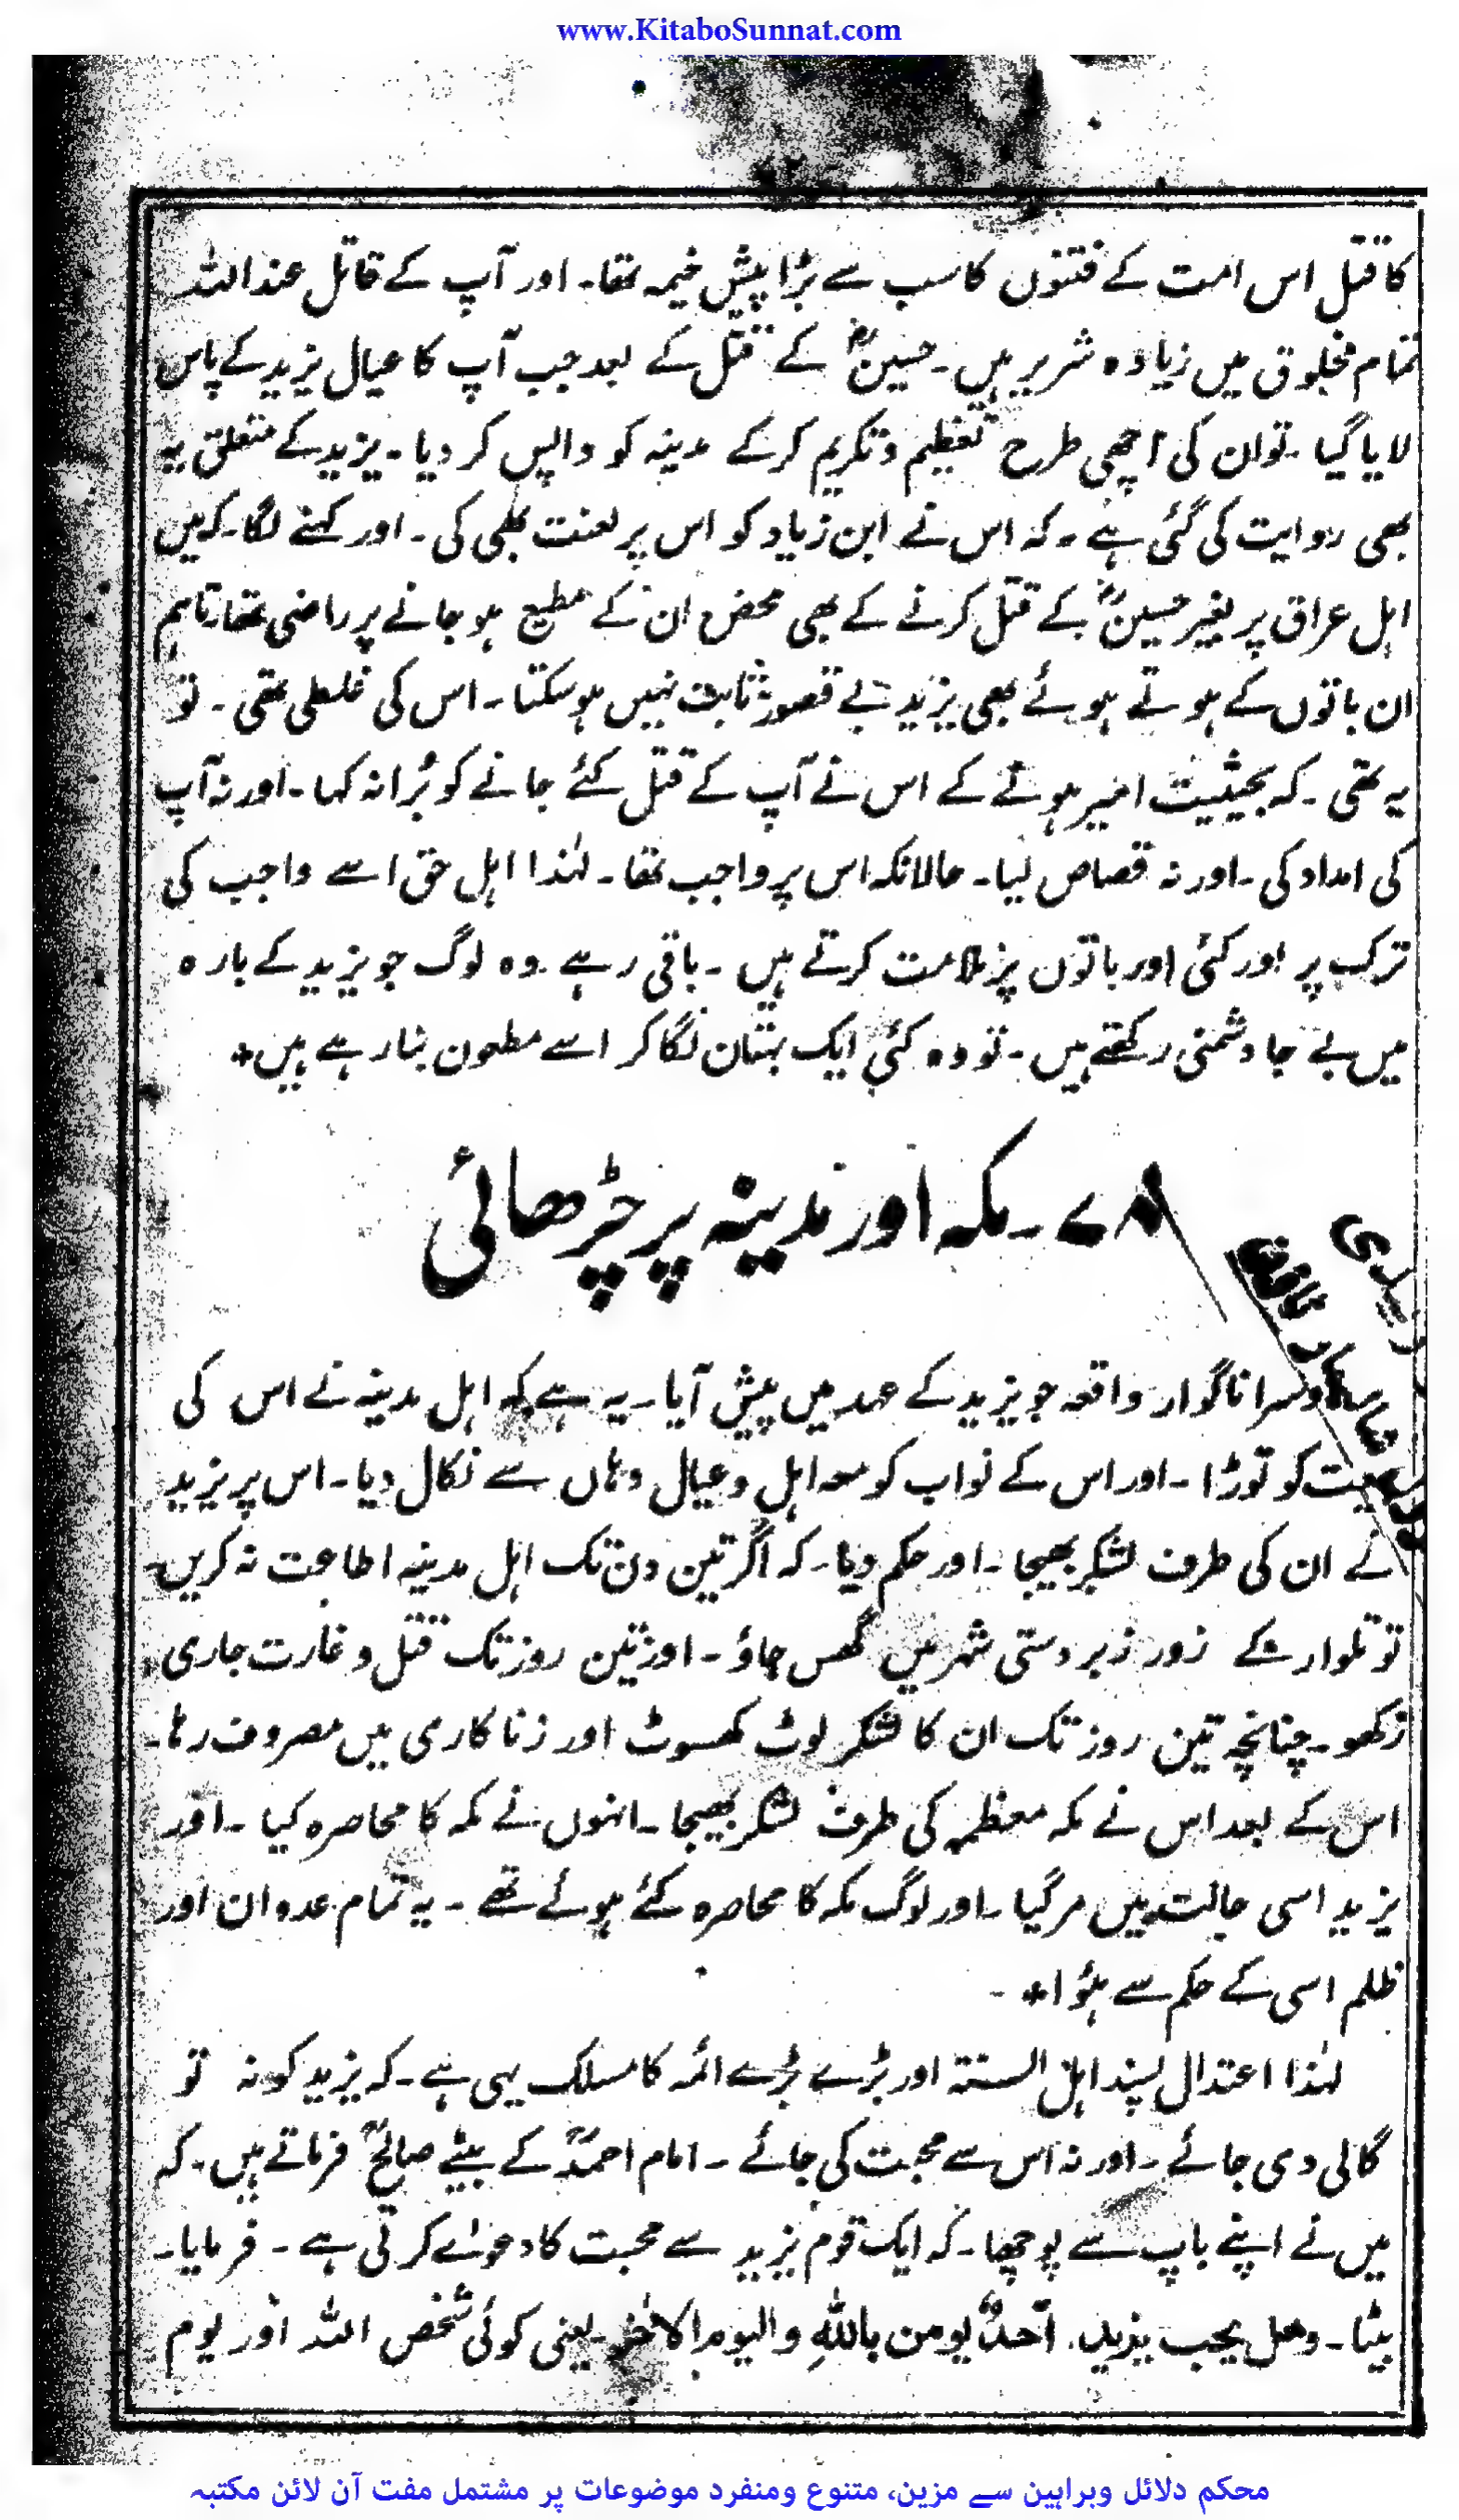 www.KitaboSunnat.com
کا قتل اس امت کے فتنوں کا سب سے بڑا پیش خیمہ تھا۔ اور آپ کے قاتل عند اللہ
تمام مخلوق میں زیادہ شریر ہیں۔ حسینؓ کے قتل کے بعد جب آپ کا عیال یزید کے پاس
لایا گیا۔ تو ان کی اچھی طرح تعظیم و تکریم کرکے مدینہ کو واپس کر دیا۔ یزید کے متعلق یہ
بھی روایت کی گئی ہے۔ کہ اس نے ابن زیاد کو اس پر لعنت بھی کی۔ اور کہنے لگا۔ کہ میں
اہل عراق پر بغیر حسینؓ کے قتل کرنے کے بھی محض ان کے مطیع ہو جانے پر راضی تھا۔ تاہم
ان باتوں کے ہوتے ہوئے بھی یزید بے قصور ثابت نہیں ہوسکتا۔ اس کی غلطی تھی۔ تو
یہ تھی۔ کہ بحیثیت امیر ہونے کے اس نے آپ کے قتل کئے جانے کو بُرا نہ کہا۔ اور نہ آپ
کی امداد کی۔ اور نہ قصاص لیا۔ حالانکہ اس پر واجب تھا۔ لہٰذا اہل حق اسے واجب کی
ترک پر اور کئی اور باتوں پر ملامت کرتے ہیں۔ باقی رہے وہ لوگ جو یزید کے بارہ
میں بے جا دشمنی رکھتے ہیں۔ تو وہ کئی ایک بہتان لگا کر اسے مطعون بنا رہے ہیں*
۷۸۔ مکہ اور مدینہ پر چڑھائی
دوسرا ناگوار واقعہ جو یزید کے عہد میں پیش آیا۔ یہ ہے کہ اہل مدینہ نے اس کی
بیعت کو توڑا۔ اور اس کے نواب کو معہ اہل و عیال وہاں سے نکال دیا۔ اس پر یزید
نے ان کی طرف لشکر بھیجا۔ اور حکم دیا۔ کہ اگر تین دن تک اہل مدینہ اطاعت نہ کریں۔
تو تلوار کے زور زبردستی شہر میں گھس جاؤ۔ اور تین روز تک قتل و غارت جاری
رکھو۔ چنانچہ تین روز تک ان کا لشکر لوٹ کھسوٹ اور زنا کاری میں مصروف رہا۔
اس کے بعد اس نے مکہ معظمہ کی طرف لشکر بھیجا۔ انہوں نے مکہ کا محاصرہ کیا۔ اور
یزید اسی حالت میں مر گیا۔ اور لوگ مکہ کا محاصرہ کئے ہوئے تھے۔ یہ تمام عدوان اور
ظلم اسی کے حکم سے ہؤا*
لہٰذا اعتدال پسند اہل السنۃ اور بڑے بڑے ائمہ کا مسلک یہی ہے۔ کہ یزید کو نہ تو
گالی دی جائے۔ اور نہ اس سے محبت کی جائے۔ امام احمدؒ کے بیٹے صالحؒ فرماتے ہیں۔ کہ
میں نے اپنے باپ سے پوچھا۔ کہ ایک قوم یزید سے محبت کا دعوٰے کرتی ہے۔ فرمایا۔
بیٹا۔ وھل یحب یزید اَحدٌ یومن باللہِ والیوم الاٰخر۔ یعنی کوئی شخص اللہ اور یوم
محکم دلائل وبراہین سے مزین، متنوع ومنفرد موضوعات پر مشتمل مفت آن لائن مکتبہ